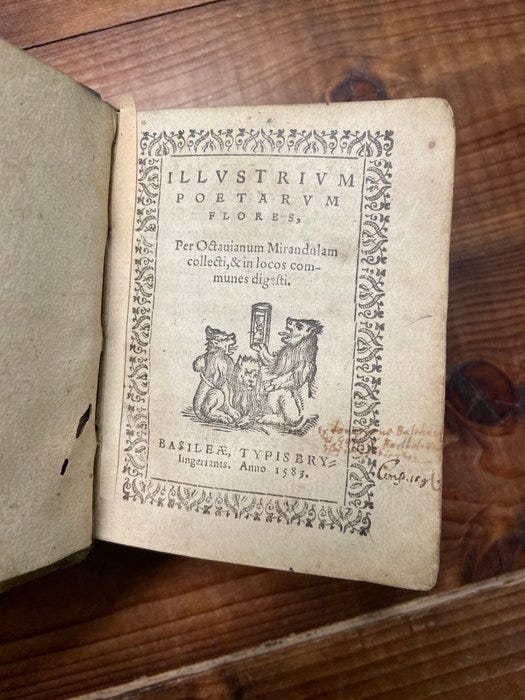 ILLVSTRIVM
POETARVM
FLORES,
Per Octauianum Mirandulam
collecti, & in locos com-
munes digesti.
BASILEÆ, TYPIS BRY-
lingerianis. Anno 1583.